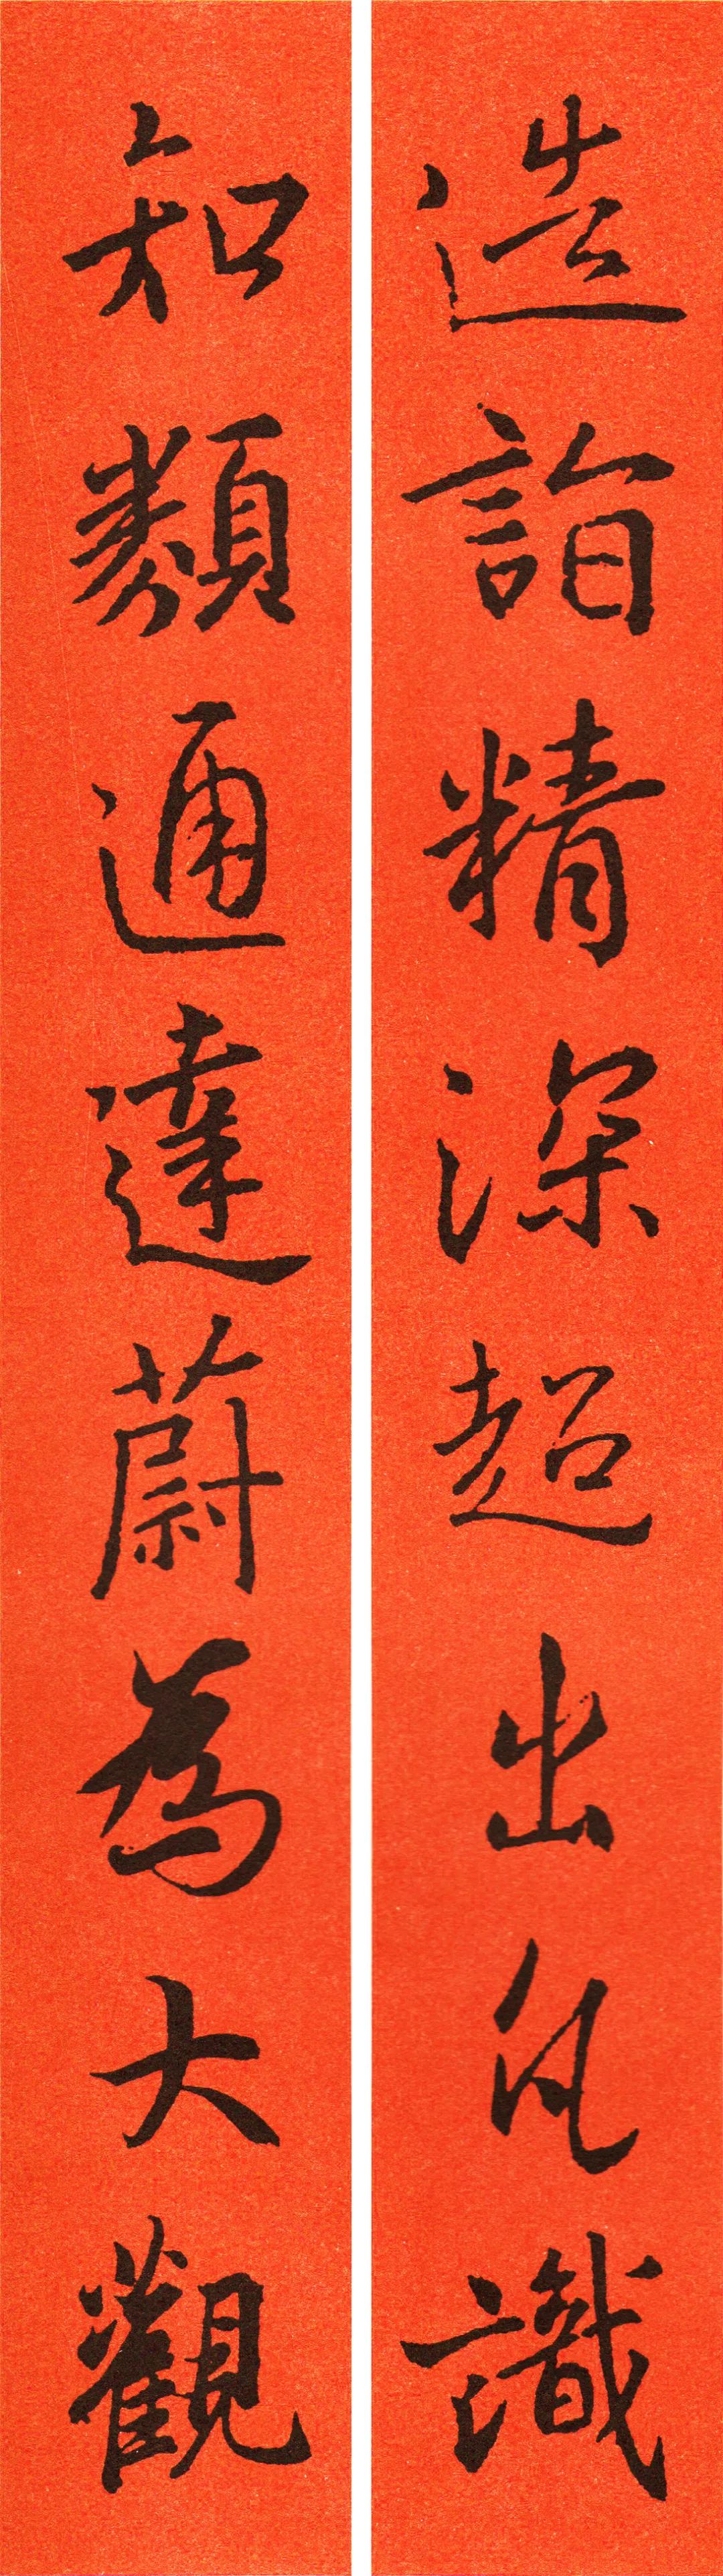 造詣精深超出凡識
知類通達蔚為大觀